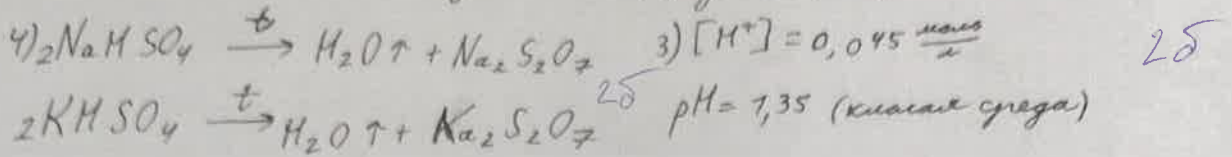 4) 2NaHSO₄ →ᵗ H₂O↑ + Na₂S₂O₇ 3) [H⁺] = 0,045 моль/л 2б
2KHSO₄ →ᵗ H₂O↑ + Ka₂S₂O₇ 2б pH = 1,35 (кислая среда)